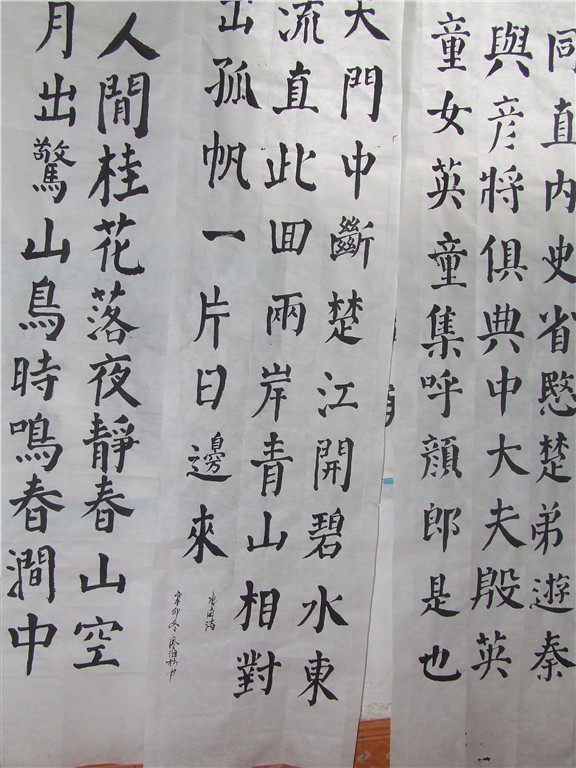 同直内史省愍楚弟遊秦
與彦將俱典中大夫殷英
童女英童集呼顏郎是也
天門中斷楚江開碧水東
流直此回兩岸青山相對
出孤帆一片日邊來
李白詩
辛卯冬
人閒桂花落夜靜春山空
月出驚山鳥時鳴春澗中